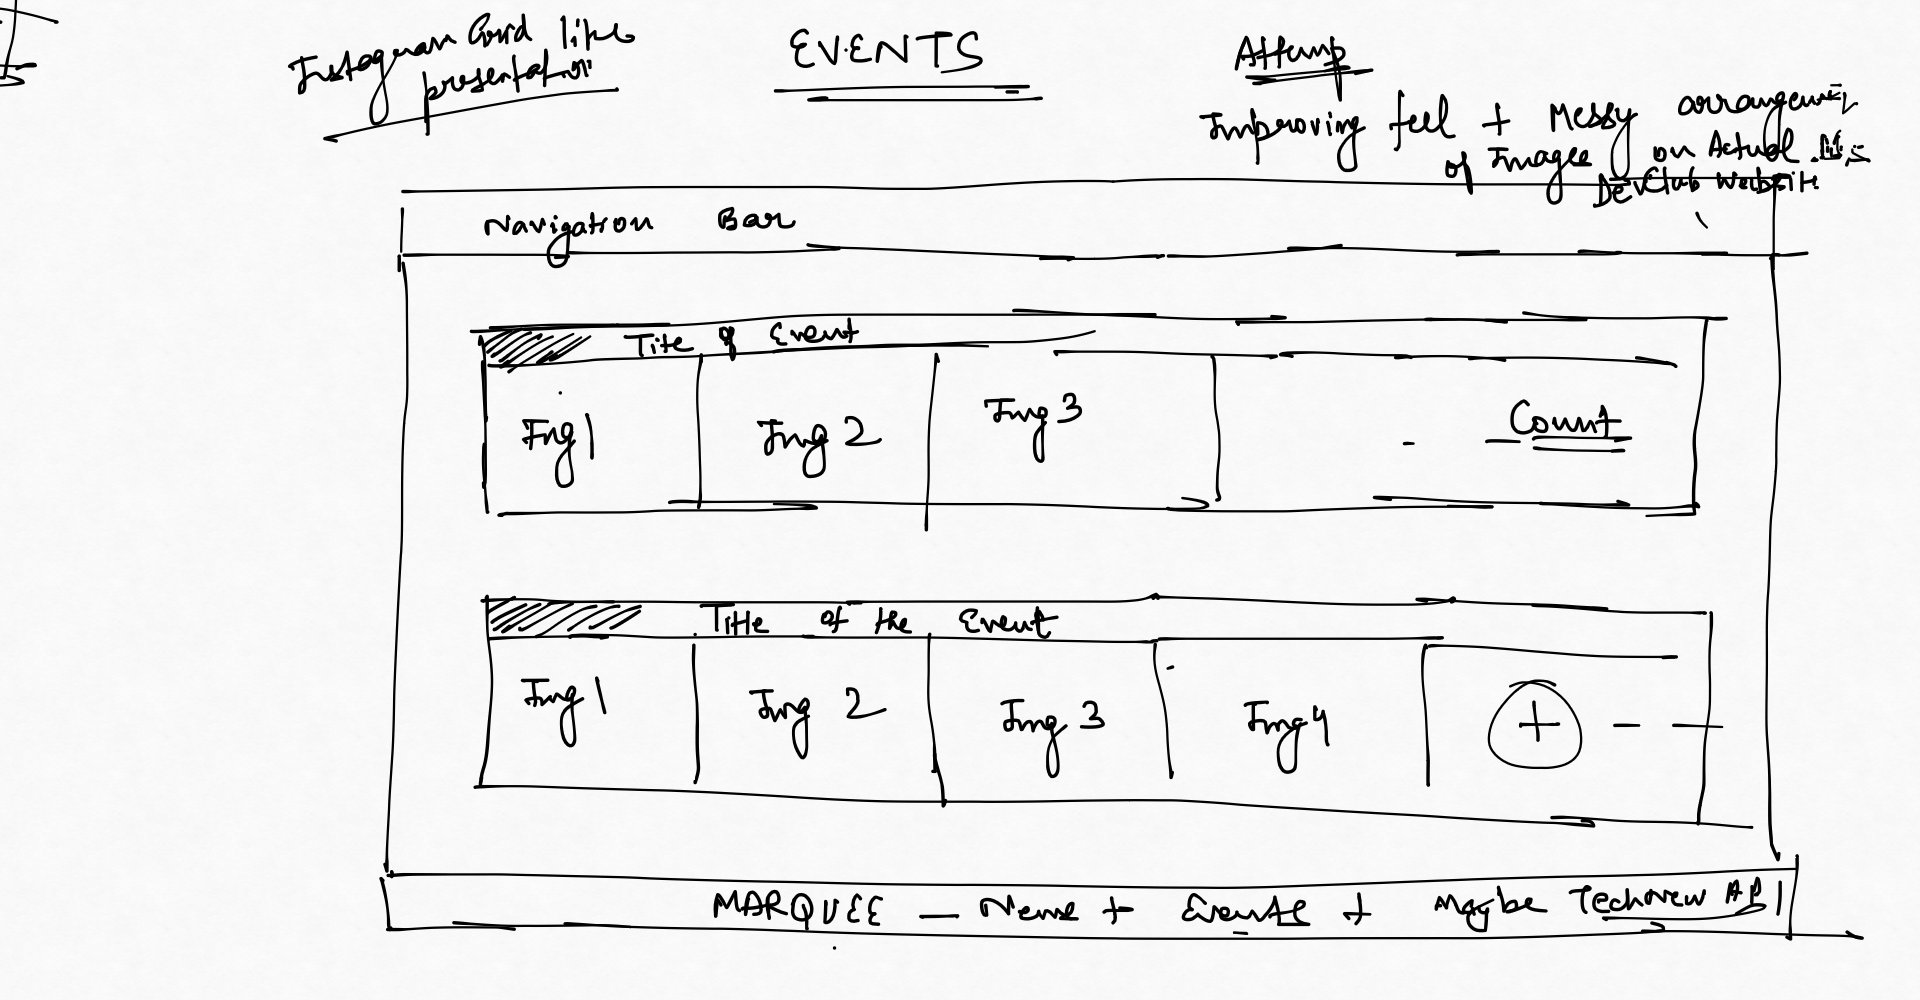 Instogram Card like
presentation
EVENTS
Attemp
Improving feel + Messy arrangement
of Images on Actual
Dev Club Website
Navigation Bar
Tite of Event
Img 1
Img 2
Img 3
Count
Title of the Event
Img 1
Img 2
Img 3
Img 4
+
MARQUEE — News + Events + Maybe Technew API